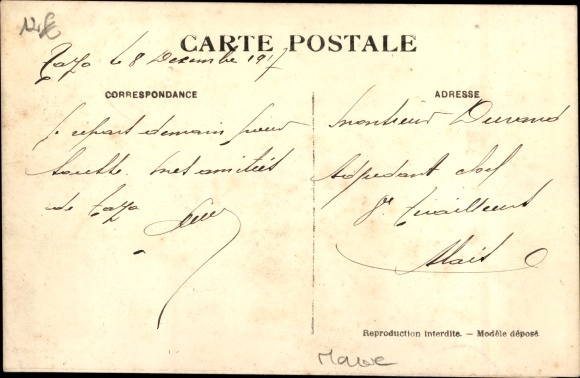 CARTE POSTALE
Taza le 8 Decembre 1917
CORRESPONDANCE
ADRESSE
Je repart demain pour
Sousse. Mes amitiés
de Taza
Monsieur Durand
Adjudant chef
Tirailleurs
Reproduction interdite. — Modèle déposé
Maroc